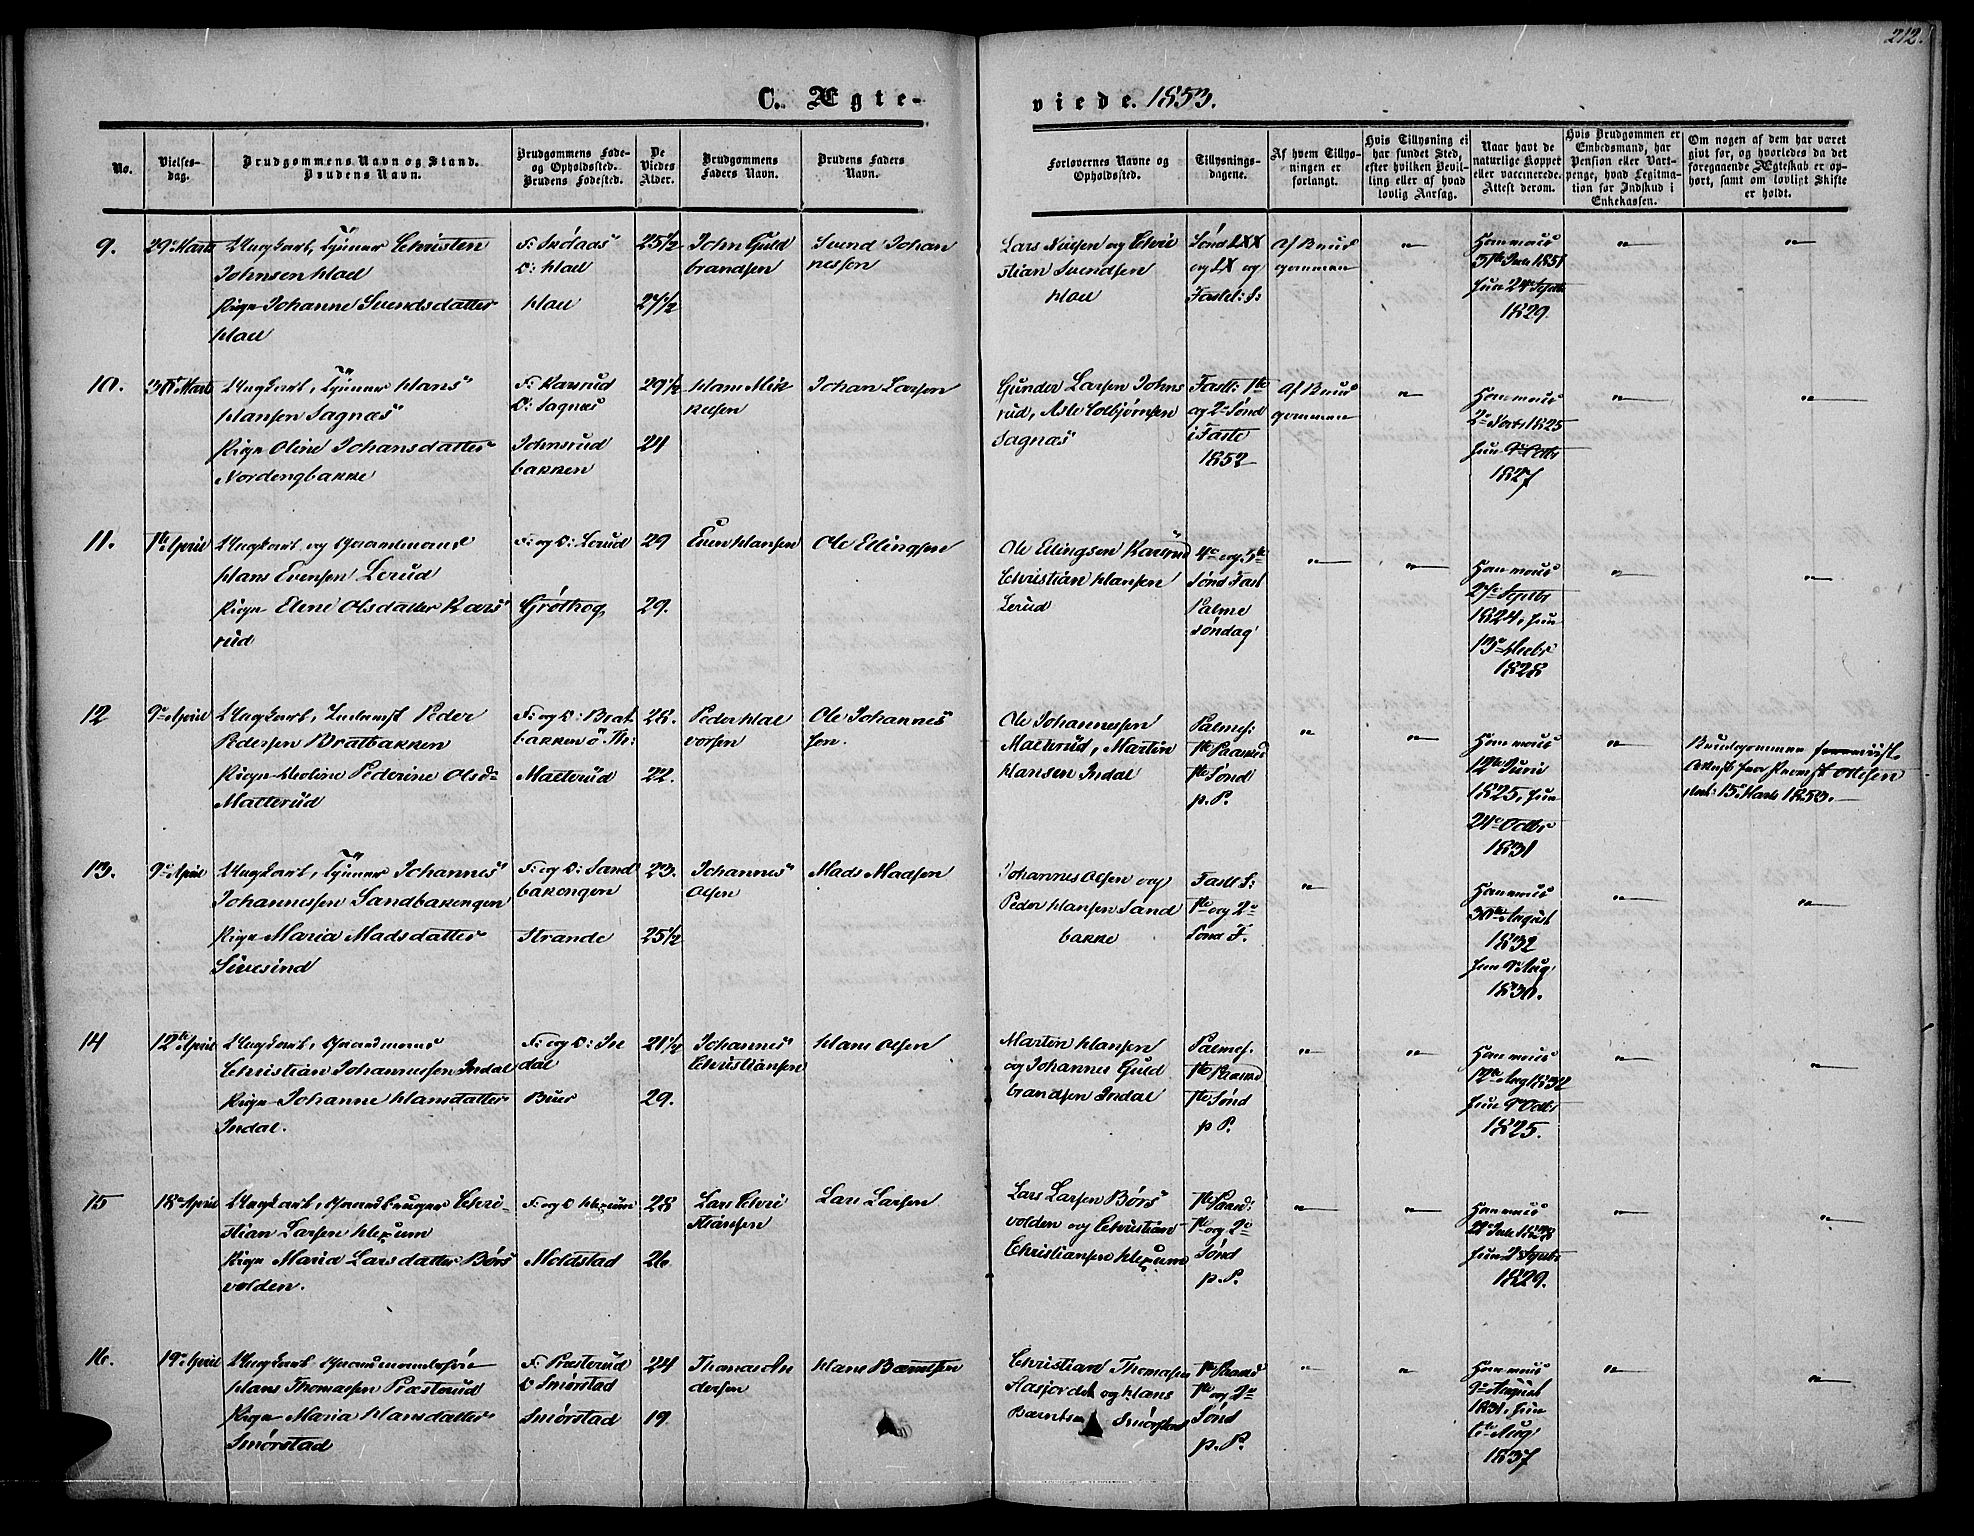 212.
C. Ægte-
viede. 1853.
No.
Vielses-
dag.
Brudgommens Navn og Stand.
Brudens Navn.
Brudgommens Føde-
og Opholdssted.
Brudens Fødested.
De
Viedes
Alder.
Brudgommens
Faders Navn.
Brudens Faders
Navn.
Forlovernes Navne og
Opholdssted.
Tillysnings-
dagene.
Af hvem Tillys-
ningen er
forlangt.
Hvis Tillysning ei
har fundet Sted,
efter hvilken Bevil-
ling eller af hvad
lovlig Aarsag.
Naar havt de
naturlige Kopper
eller vaccinerede.
Attest derom.
Hvis Brudgommen er
Embedsmand, har
Pension eller Vart-
penge, hvad Legitima-
tion for Indskud i
Enkekassen.
Om nogen af dem har været
givt for, og hvorledes da det
foregaaende Ægteskab er op-
hørt, samt om lovligt Skifte
er holdt.
9.
29 Marts
Ungkarl, Christen
Johnsen
Pige Johanne Svendsdatter
25 1/2
27 1/2
John Guld
brandsen
Svend Johan
nessen
Lars og Chri
stian Svendsen
Sønd LXX
og LX og
Fastel: S:
Af Brud
gommen
24 Septbr
1829.
10.
30 Marts
Ungkarl, Hans
Hansen Sagnæs
Pige Oline Johansdatter
Nordengbakke
F: Karsrud
O: Sagnæs
Johnsrud
bakken
29 1/2
24
Hans Mik
kelsen
Johan Larsen
Gunder Larsen Johns
rud, Asle Colbjørnsen
Sagnæs
Fastl: 1te
og 2 Sønd
i Faste
1852
Af Brud
gommen
1825
1827
11.
1te April
Ungkarl og Gaardmand
Hans Evensen Lerud
Pige Eline Olsdatter Kars
rud
F: og O: Lerud
Grøthog
29
29.
Even Hansen
Ole Ellingsen
Ole Ellingsen Karsrud
Christian Hansen
Lerud
4e og 5te
Sønd Fast
Palme
søndag
Septbr
1824, hun
1828
12
9 April
Ungkarl, Inderst Peder
Pedersen Bratbakken
Pige Pederine Olsd
Mælerud
F: og O: Brat
bakken
Mælerud
28.
22.
Peder Hal
vorsen
Ole Johannes
sen.
Ole Johannessen
Mælerud, Martin
Hansen Indal
Palmes:
1te Paaske
1te Sønd
p. P.
12 Juni
1825, hun
24 Octbr
1831
Brudgommen
15 Marts 1853.
13.
9 April
Ungkarl, Johannes
Johannessen Sandbakengen
Pige Maria Madsdatter
Sivesind
F: og O: Sand
bakengen
Strande
23.
25 1/2
Johannes
Olsen
Mads Madsen
Johannes Olsen og
Peder Hansen Sand
bakke
Fastl S:
1te og 2e
Sønd F.
30 August
1832
hun 9 Aug
1830.
14
12te April
Ungkarl, Gaardmand
Christian Johannessen Indal
Pige Johanne Hansdatter
Indal.
F: og O: In
dal
21 1/2
29.
Johannes
Christiansen
Hans Olsen
Martin Hansen
og Johannes Guld
brandsen Indal
Palmes.
1te Paaske
1te Sønd
p P.
hun 9 Octbr
1825.
15
18 April
Ungkarl, Gaardbruger Chri-
stian Larsen
Pige Maria Larsdatter Børs
volden.
Moldstad
28
26
Lars Chri
stiansen
Lars Larsen
Lars Larsen Børs
volden og Christian
Christiansen
1te Paask:
1te og 2e
Sønd
p. P.
hun 2 Septbr
1829.
16.
19 April
Ungkarl, Gaardmandssøn
Hans Thomassen Præsterud
Pige Maria Hansdatter
Smørstad
F: Præsterud
O Smørstad
Smørstad
24
19
Thomas An
dersen
Hans Berntsen
Christian Thomassen
Aasjordet og Hans
Berntsen Smørstad
1te Paaske
1te og 2e
Sønd
p. P.
9 August
1831, hun
6te Aug
1837